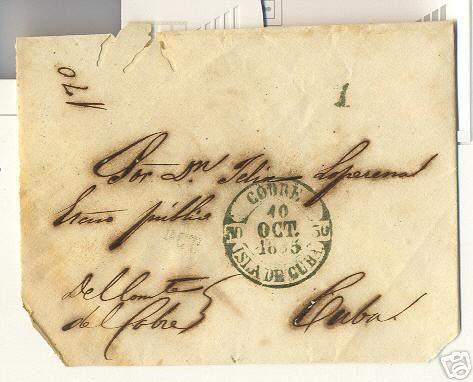 170
1
Sor. Dn. Felix Loperena
Escno públic
COBRE.
10
OCT.
1855
ISLA DE CUBA
OCT.
Del Comte
del Cobre
Cuba